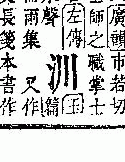 廣韻市若切
士師之職掌士
左傳
洲
玉篇
聲
而雨集 又作
長箋本書作